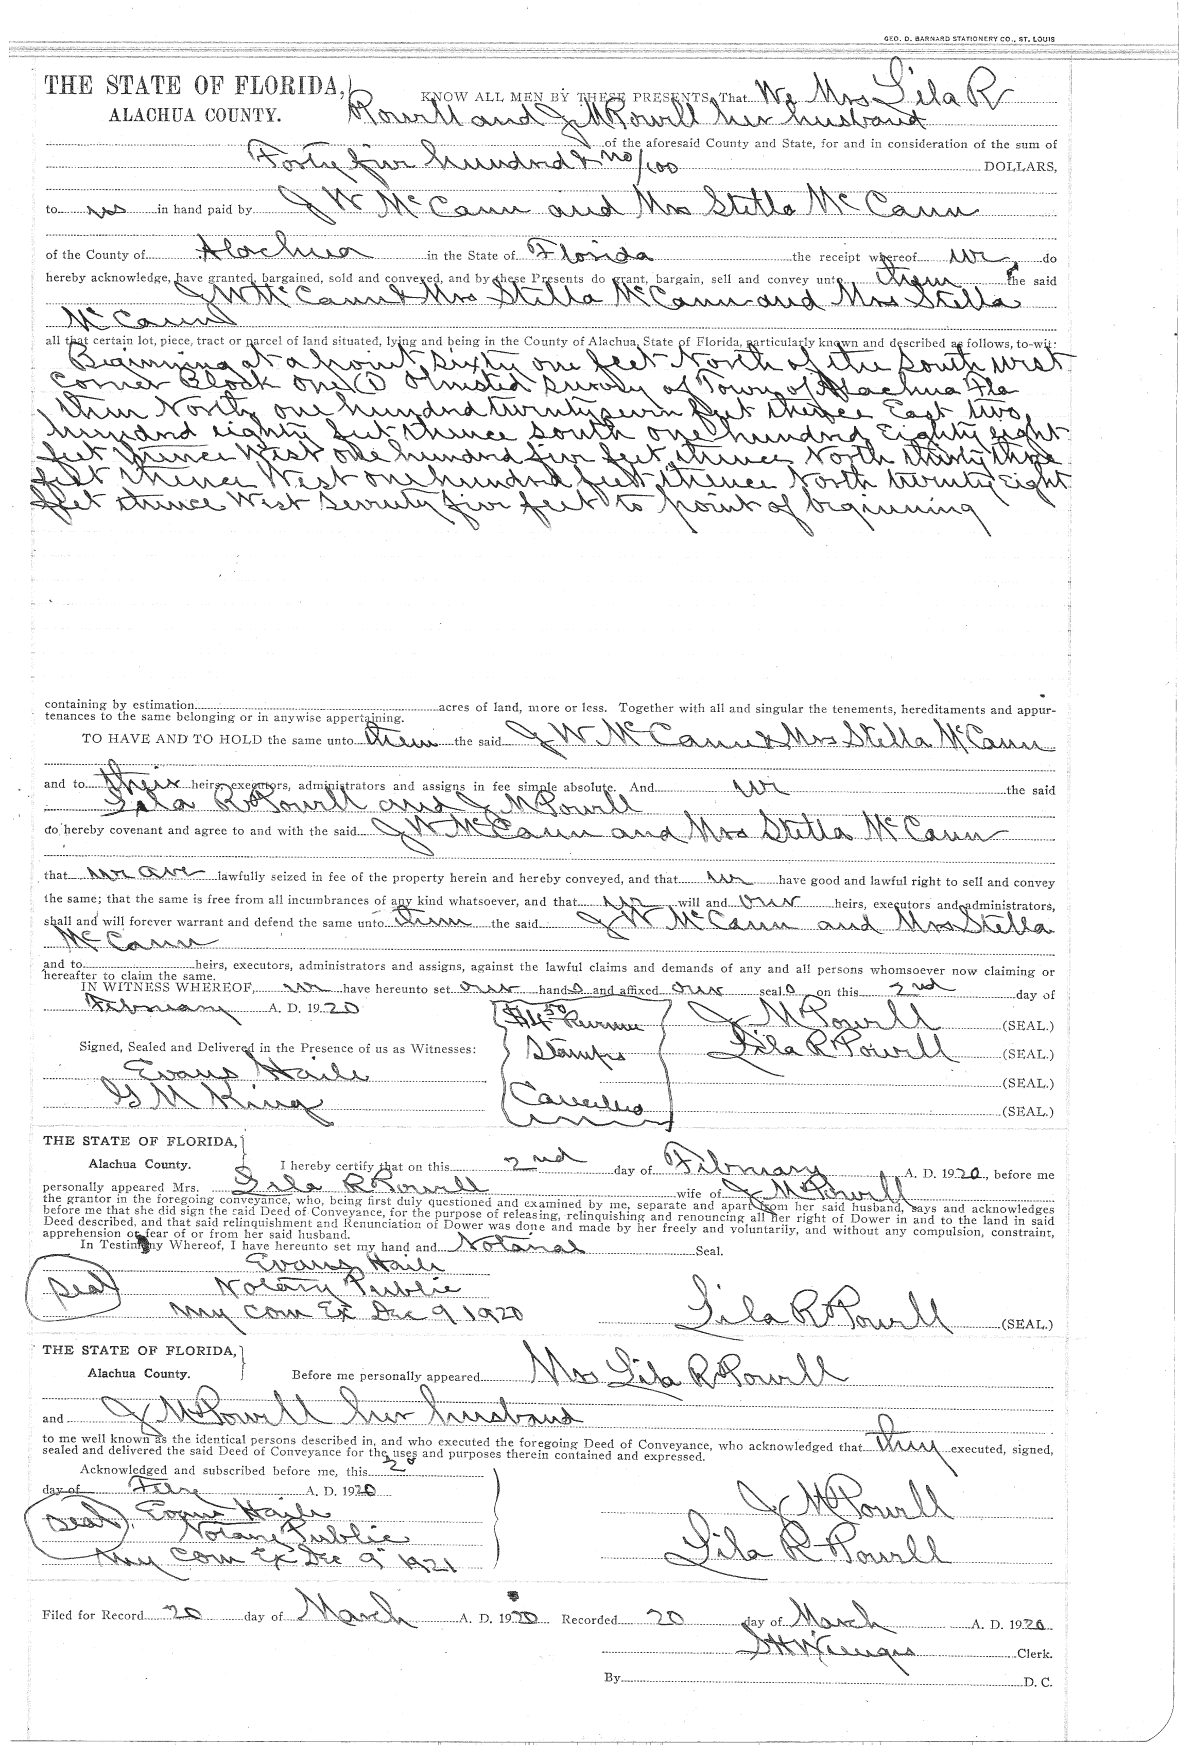 GEO. D. BARNARD STATIONERY CO., ST. LOUIS
THE STATE OF FLORIDA,
ALACHUA COUNTY.
KNOW ALL MEN BY THESE PRESENTS, That We Mrs Lila R
Powell and J M Powell her husband
of the aforesaid County and State, for and in consideration of the sum of
Forty five hundred & no/100 DOLLARS,
to us in hand paid by J W McCann and Mrs Stella McCann
of the County of Alachua in the State of Florida the receipt whereof we do
hereby acknowledge, have granted, bargained, sold and conveyed, and by these Presents do grant, bargain, sell and convey unto them the said
J W McCann & Mrs Stella McCann and Mrs Stella
McCann
all that certain lot, piece, tract or parcel of land situated, lying and being in the County of Alachua, State of Florida, particularly known and described as follows, to-wit:
Beginning at a point sixty one feet North of the South West
Corner Block one (1) Olmsted survey of Town of Alachua Fla
then North one hundred twenty seven feet thence East two
hundred eighty feet thence south one hundred Eighty eight
feet thence West one hundred five feet thence North thirty three
feet thence West one hundred feet thence North twenty Eight
feet thence West seventy five feet to point of beginning
containing by estimation acres of land, more or less. Together with all and singular the tenements, hereditaments and appur-
tenances to the same belonging or in anywise appertaining.
TO HAVE AND TO HOLD the same unto them the said J W McCann & Mrs Stella McCann
and to their heirs, executors, administrators and assigns in fee simple absolute. And we the said
Lila R Powell and J M Powell
do hereby covenant and agree to and with the said J W McCann and Mrs Stella McCann
that we are lawfully seized in fee of the property herein and hereby conveyed, and that we have good and lawful right to sell and convey
the same; that the same is free from all incumbrances of any kind whatsoever, and that we will and our heirs, executors and administrators,
shall and will forever warrant and defend the same unto them the said J W McCann and Mrs Stella
McCann
and to heirs, executors, administrators and assigns, against the lawful claims and demands of any and all persons whomsoever now claiming or
hereafter to claim the same.
IN WITNESS WHEREOF, we have hereunto set our hands and affixed our seals on this 2nd day of
February A. D. 1920
$4.50 Revenue
Stamps
Cancelled
J M Powell (SEAL.)
Lila R Powell (SEAL.)
(SEAL.)
(SEAL.)
Signed, Sealed and Delivered in the Presence of us as Witnesses:
Evans Haile
G M King
THE STATE OF FLORIDA,
Alachua County.
I hereby certify that on this 2nd day of February A. D. 1920, before me
personally appeared Mrs. Lila R Powell wife of J M Powell
the grantor in the foregoing conveyance, who, being first duly questioned and examined by me, separate and apart from her said husband, says and acknowledges
before me that she did sign the said Deed of Conveyance, for the purpose of releasing, relinquishing and renouncing all her right of Dower in and to the land in said
Deed described, and that said relinquishment and Renunciation of Dower was done and made by her freely and voluntarily, and without any compulsion, constraint,
apprehension or fear of or from her said husband.
In Testimony Whereof, I have hereunto set my hand and Notarial Seal.
Evans Haile
Seal Notary Public
My Com Ex Dec 9 1920
Lila R Powell (SEAL.)
THE STATE OF FLORIDA,
Alachua County.
Before me personally appeared Mrs Lila R Powell
and J M Powell her husband
to me well known as the identical persons described in, and who executed the foregoing Deed of Conveyance, who acknowledged that they executed, signed,
sealed and delivered the said Deed of Conveyance for the uses and purposes therein contained and expressed.
Acknowledged and subscribed before me, this 2d
day of Feby A. D. 1920
J M Powell
Seal Evans Haile
Notary Public
Lila R Powell
My Com Ex Dec 9 1921
Filed for Record 20 day of March A. D. 1920 Recorded 20 day of March A. D. 1920
S H Wienges Clerk.
By D. C.